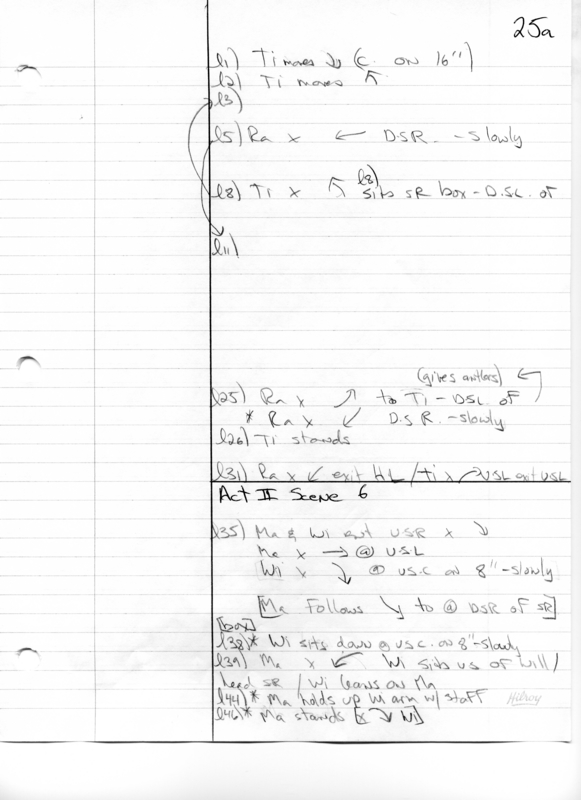 25a
l1) Ti moves ↘ (C. on 16")
l2) Ti moves ↖
l3)
l5) Ra x ← D.S.R. - slowly
l8) Ti x ↖ l8) sits SR box - D.S.L. of
l11)
(gives antlers) ←
l25) Ra x ↗ to Ti - DSL of
* Ra x ↙ D.S.R. - slowly
l26) Ti stands
l31) Ra x ↙ exit HL / Ti x ↗ USL exit USL
Act II Scene 6
l35) Ma & Wi ent USR x ↘
Ma x → @ U.S.L
Wi x ↘ @ US.C on 8" - slowly
[Ma Follows ↘ to @ DSR OF SR]
[box]
l38)* Wi sits down @ US.C. on 8" - slowly
l39) Ma x ↙ Wi sits US of will /
head SR / Wi leans on Ma
l44)* Ma holds up Wi arm w/ staff
l46)* Ma stands [x ↘ Wi]
Hilroy